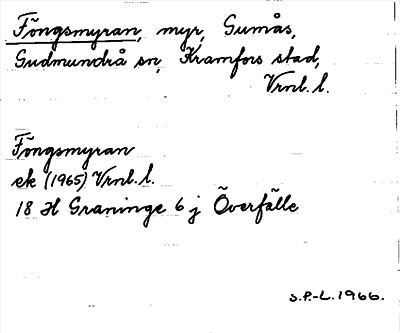 Föngsmyran, myr, Gumås,
Gudmundrå sn, Kramfors stad,
Vrnl. l.
Föngsmyran
ek (1965) Vrnl. l.
18 H Graninge 6 j Överfälle
S.P.-L. 1966.